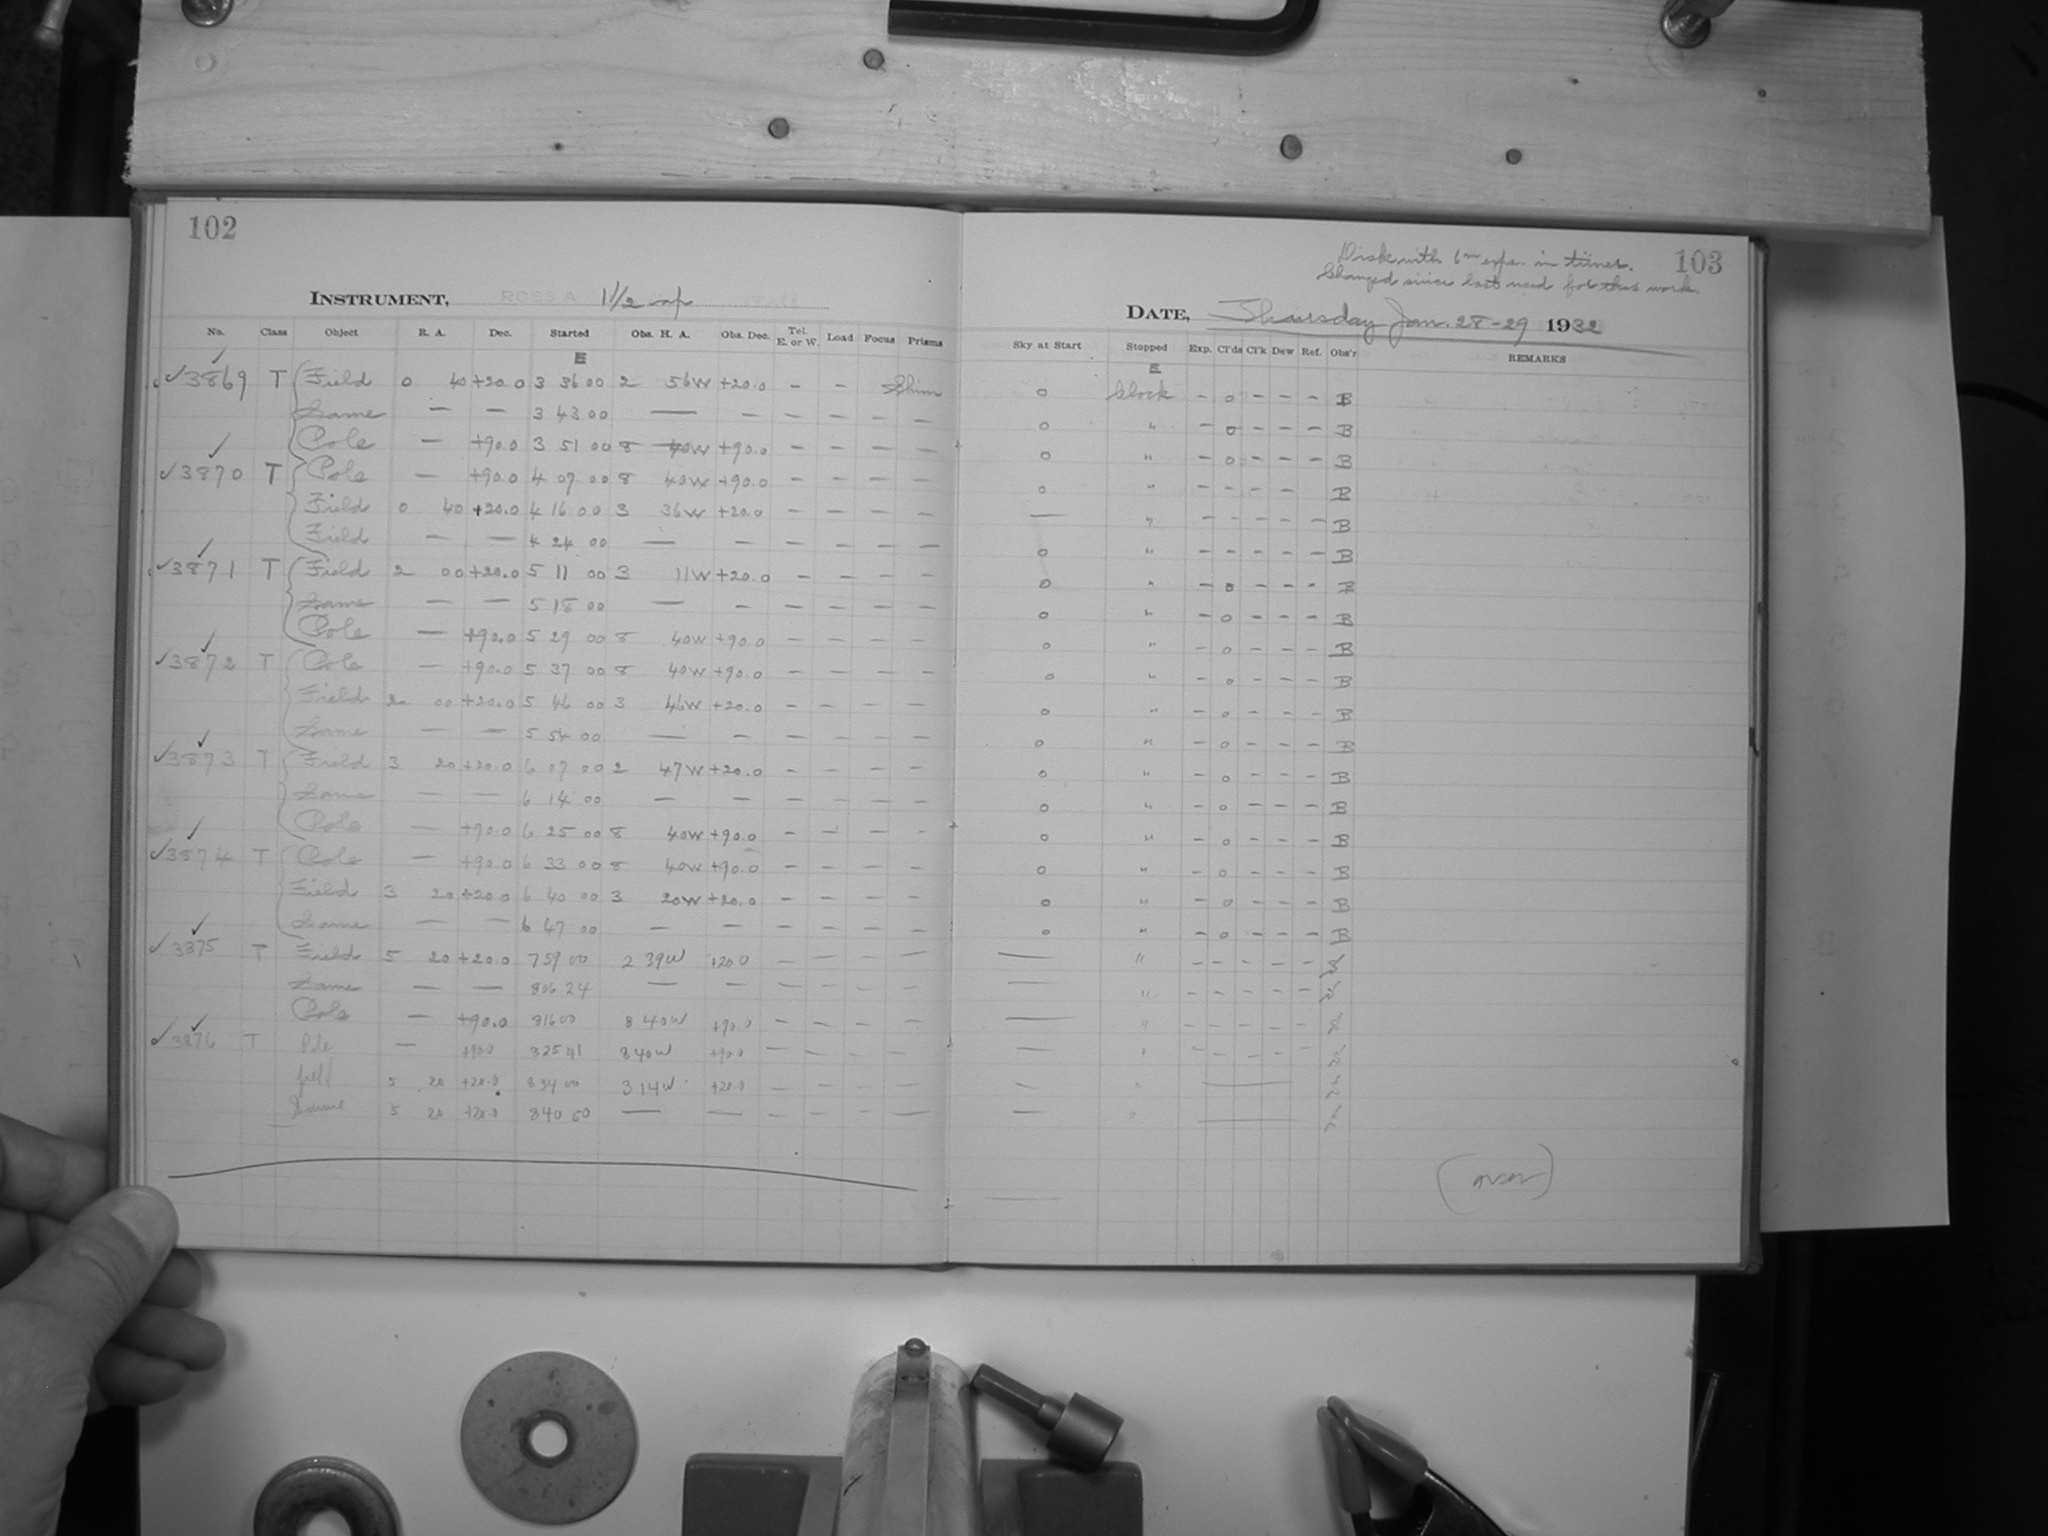 102
INSTRUMENT, ROSS A 1 1/2 ap
No. Class Object R. A. Dec. Started Obs. H. A. Obs. Dec. Tel. E. or W. Load Focus Prisms
E
3869 T Field 0 40 +20.0 3 36 00 2 56W +20.0 - -
Same — — 3 43 00 — — - - - -
Pole — +90.0 3 51 00 8 40W +90.0 - - - -
3870 T Pole — +90.0 4 07 00 8 40W +90.0 - - - -
Field 0 40 +20.0 4 16 00 3 36W +20.0 - - - -
Field — — 4 24 00 — — - - - -
3871 T Field 2 00 +20.0 5 11 00 3 11W +20.0 - - - -
Same — — 5 18 00 — — - - - -
Pole — +90.0 5 29 00 8 40W +90.0 - - - -
3872 T Pole — +90.0 5 37 00 8 40W +90.0 - - - -
Field 2 00 +20.0 5 46 00 3 46W +20.0 - - - -
Same — — 5 54 00 — — - - - -
3873 T Field 3 20 +20.0 6 07 00 2 47W +20.0 - - - -
Same — — 6 14 00 — — - - - -
Pole — +90.0 6 25 00 8 40W +90.0 - - - -
3874 T Pole — +90.0 6 33 00 8 40W +90.0 - - - -
Field 3 20 +20.0 6 40 00 3 20W +20.0 - - - -
Same — — 6 47 00 — — - - - -
3875 T Field 5 20 +20.0 7 59 00 2 39W +20.0 - - - -
Same — — 8 06 24 — — - - - -
Pole — +90.0 8 16 00 8 40W +90.0 - - - -
3876 T Pole — +90.0 8 25 41 8 40W +90.0 - - - -
field 5 20 +20.0 8 34 00 3 14W +20.0 - - - -
Same 5 20 +20.0 8 40 50 — — - - - -
Disk with 6m exps. in timer. 103
Changed since last used for this work.
DATE, Thursday Jan. 28-29 1932
Sky at Start Stopped Exp. Cl'ds Cl'k Dew Ref. Obs'r REMARKS
E
0 Clock - 0 - - - B
0 " - 0 - - - B
0 " - 0 - - - B
0 " - - - - B
— " - - - - - B
0 " - - - - - B
0 " - 0 - - - B
0 " - 0 - - - B
0 " - 0 - - - B
0 " - 0 - - - B
0 " - 0 - - - B
0 " - 0 - - - B
0 " - 0 - - - B
0 " - 0 - - - B
0 " - 0 - - - B
0 " - 0 - - - B
0 " - 0 - - - B
0 " - 0 - - - B
— " - - - - -
— " - - - - -
— " - - - - -
— " - - - - -
— " —
— " —
(over)